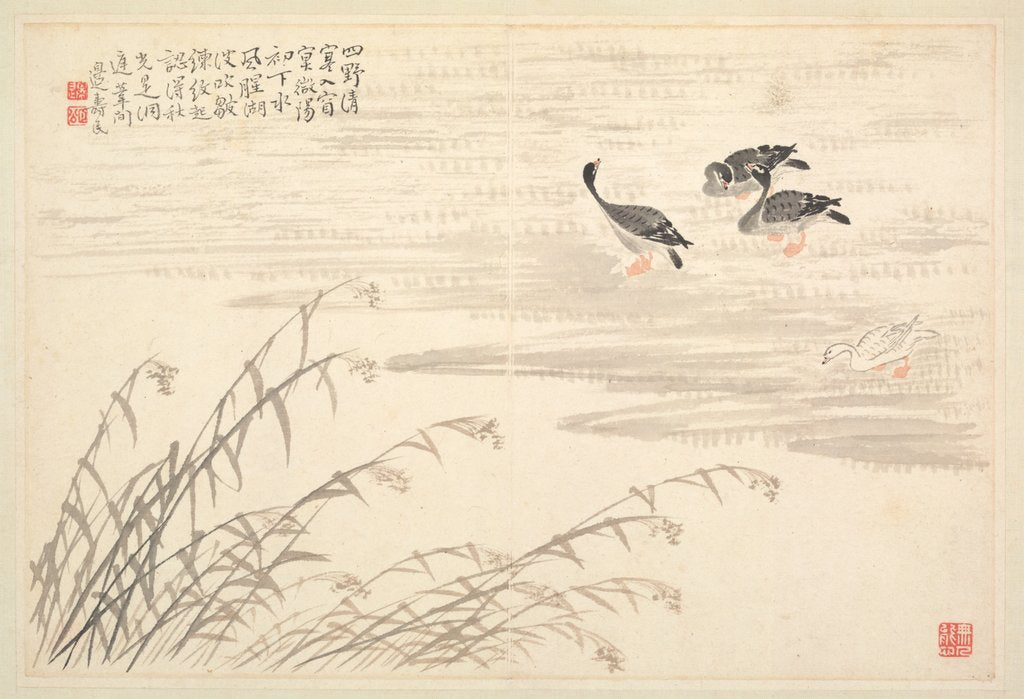 四野清
寒入窅
冥微陽
初下水
風腥湖
波吹皺
練紋起
認得秋
光是洞
庭葦間
邊壽民